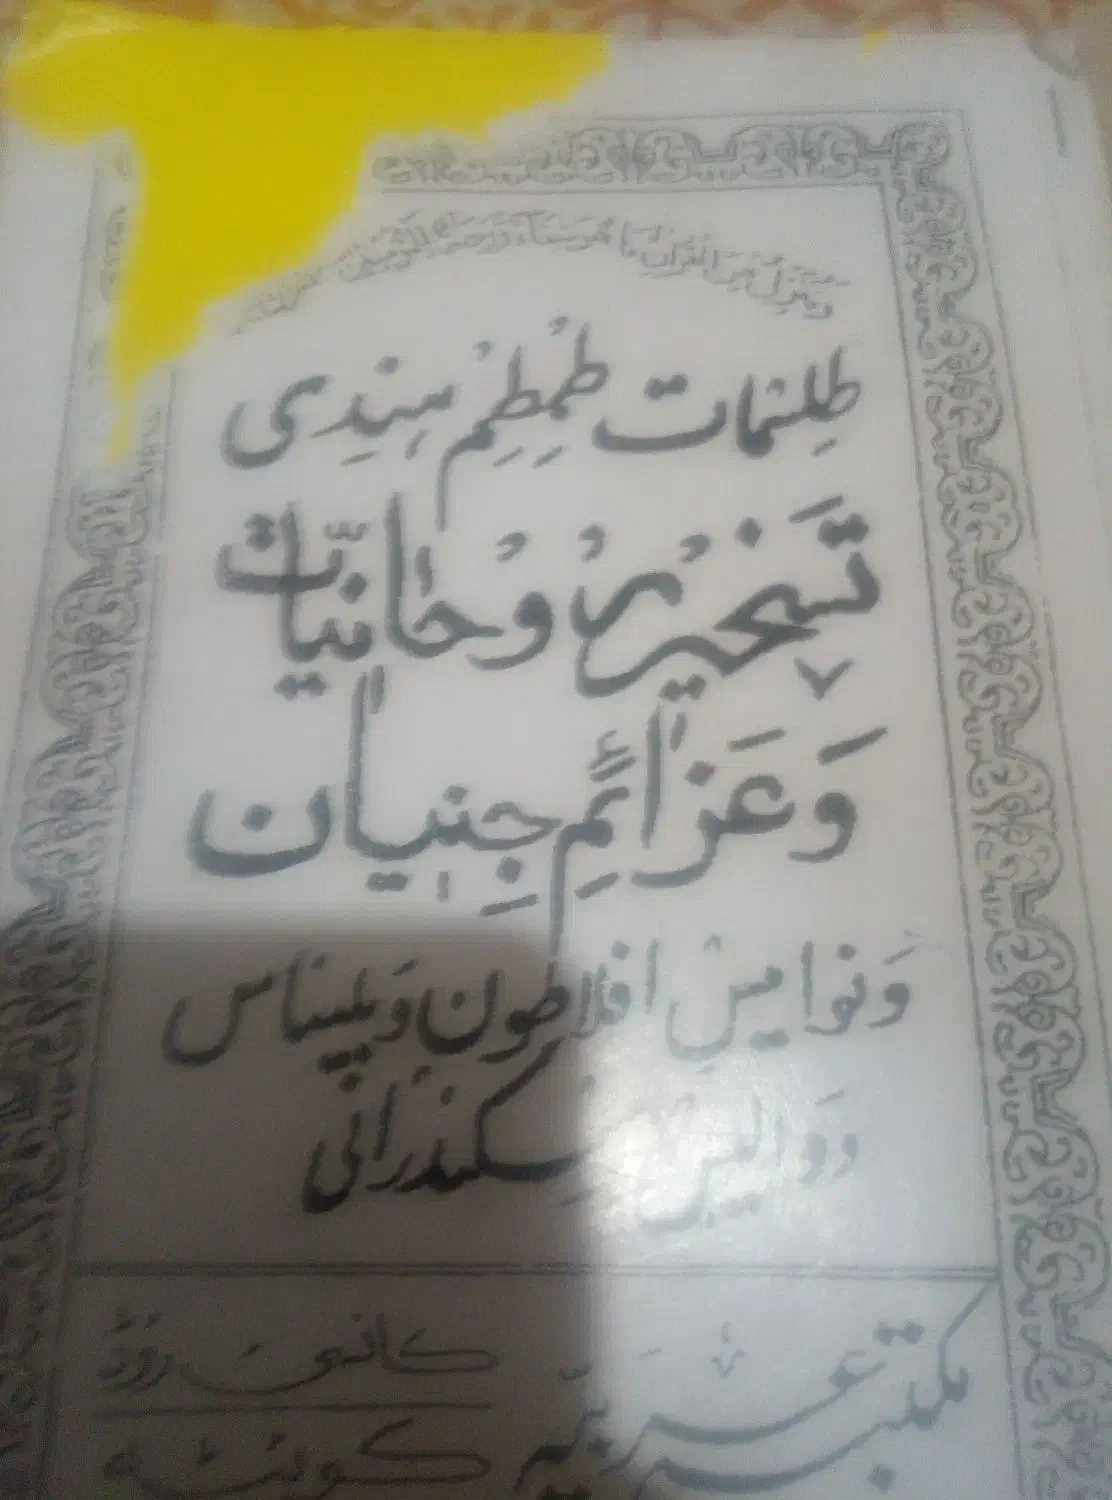 وَنُنَزِّلُ مِنَ الْقُرْآنِ مَا هُوَ شِفَاءٌ وَرَحْمَةٌ لِلْمُؤْمِنِينَ
طِلِسْمات طُمْطِمْ هِندِی
تَسْخِیْرِ رُوْحَانِیَّات
وَعَزَائِمِ جِنِّیَان
وَنوامیسِ افلاطون وَبلیناس
سکندرانی
مکتبہ عربیہ کانسی روڈ
کوئٹہ